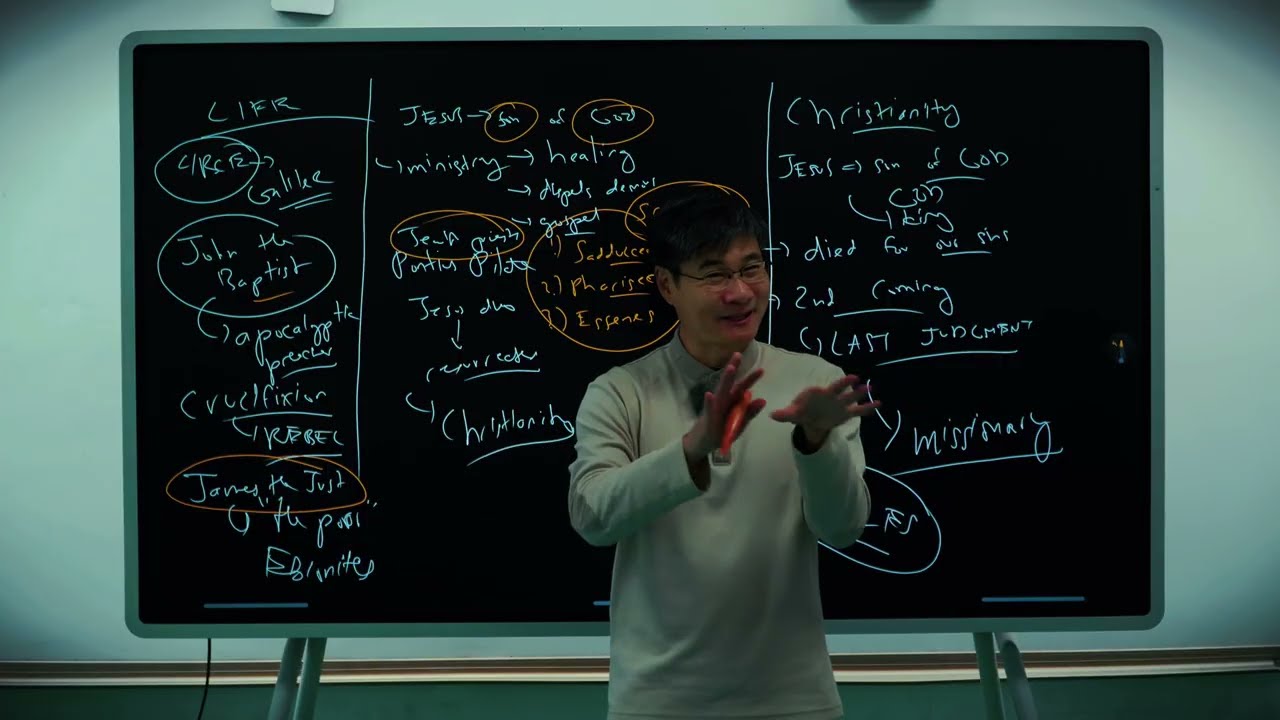 LIFE
Galilee
John the
Baptist
apocalyptic
preacher
Crucifixion
REBEL
James the Just
"the poor"
Ebionites
JESUS → son of GOD
ministry → healing
→ dispels demons
→ gospel
Pontius Pilate
Jesus dies
Christianity
1) Sadducee
2) Pharisee
3) Essenes
Christianity
JESUS → son of GOD
GOD
King
→ died for our sins
2nd Coming
LAST JUDGMENT
missionary